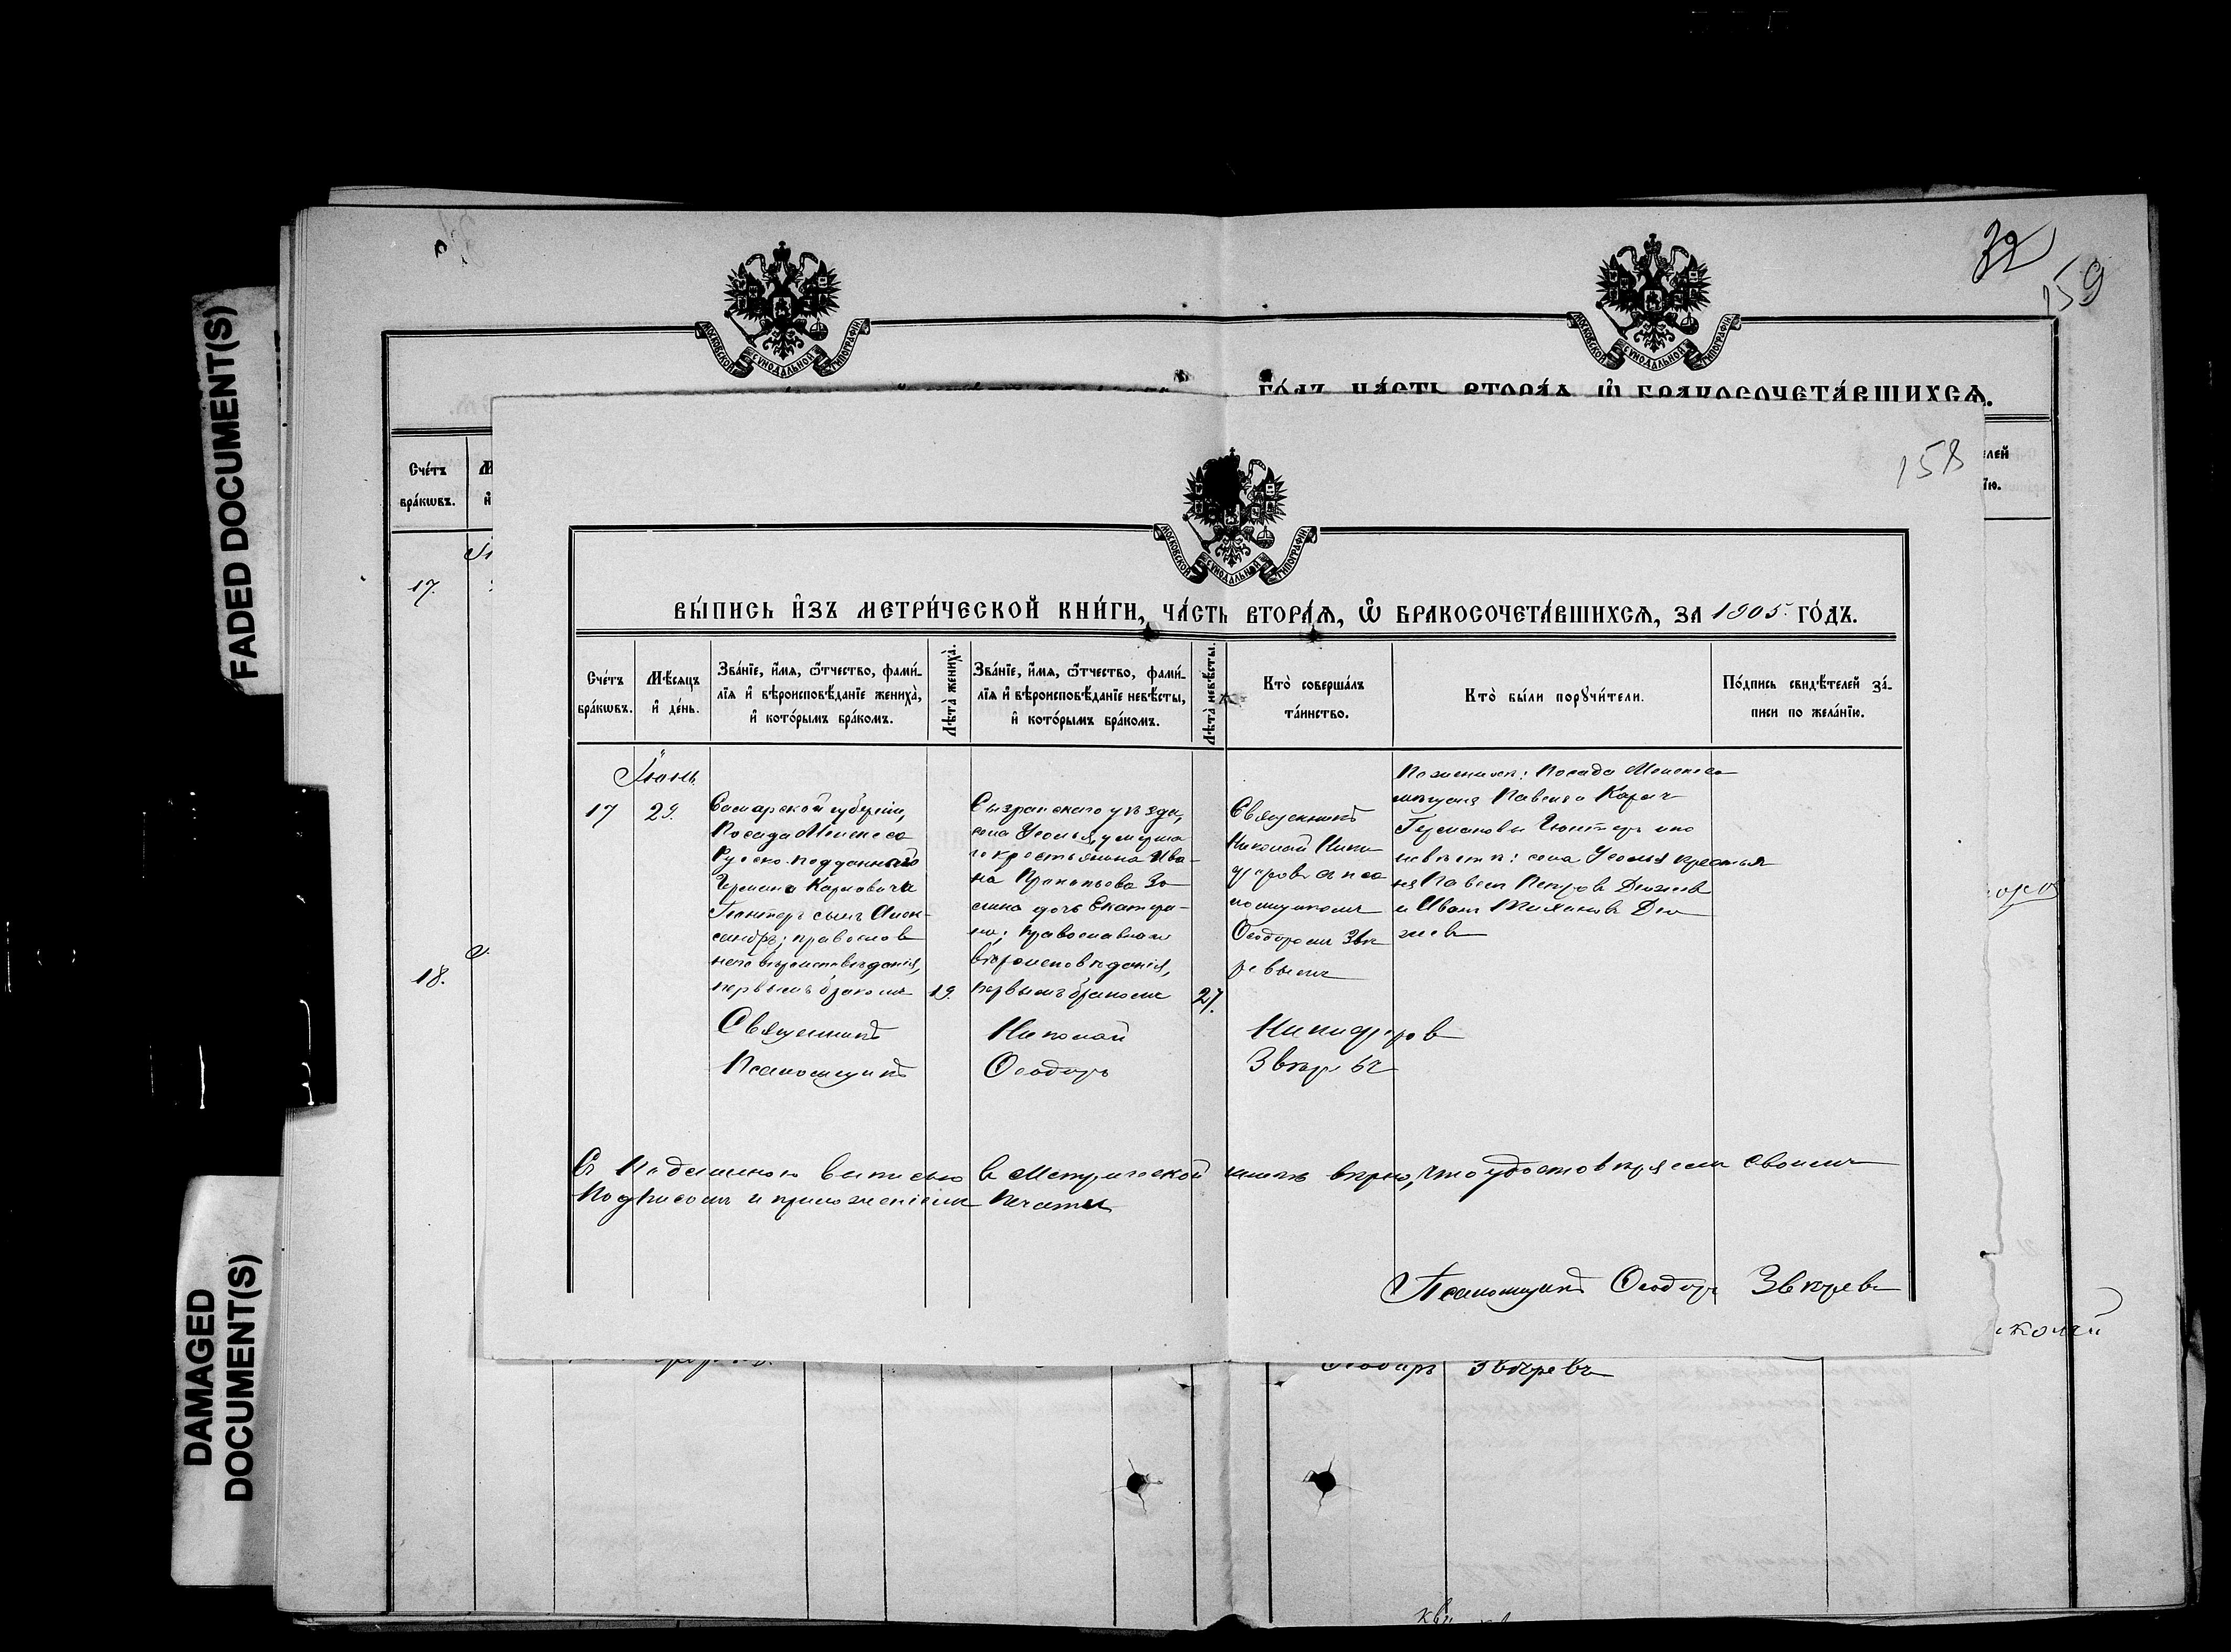 FADED DOCUMENT(S)
DAMAGED
DOCUMENT(S)
32
159
МОСКОВСКОЙ СѴНОДАЛЬНОЙ ТИПОГРАФІИ
МОСКОВСКОЙ СѴНОДАЛЬНОЙ ТИПОГРАФІИ
го́дъ ча́сть втора́ѧ, ѡ҆ бракосочета́вшихсѧ.
Сче́тъ
бра́кѡвъ.
17.
18.
158
МОСКОВСКОЙ СѴНОДАЛЬНОЙ ТИПОГРАФІИ
вы́пись и҆зъ метри́ческой кни́ги, ча́сть втора́ѧ, ѡ҆ бракосочета́вшихсѧ, за 1905 го́дъ.
Сче́тъ
бра́кѡвъ.
Мѣ́сяцъ
и҆ де́нь.
Зва́нїе, и҆́мя, ѻ҆́тчество, фами́-
лїя и҆ вѣроисповѣ́данїе жениха̀,
и҆ кото́рымъ бра́комъ.
Лѣ́та̀ жениха̀.
Зва́нїе, и҆́мя, ѻ҆́тчество, фами́-
лїя и҆ вѣроисповѣ́данїе невѣ́сты,
и҆ кото́рымъ бра́комъ.
Лѣ́та̀ невѣ́сты.
Кто̀ соверша́лъ
та́инство.
Кто̀ бы́ли порꙋчи́тели.
По́дпись свидѣ́телей за́-
писи по жела́нїю.
Іюнь
17
29.
Самарской губерніи,
Посада Мелекеса
Русско-подданнаго
Германа Карловича
Гюнтеръ сынъ Алек-
сандръ; православ
наго вѣроисповѣданія,
первымъ бракомъ
19.
Сызранскаго уѣзда,
села Усолья, умерша
го крестьянина Ива-
на Прокопьева За
дочь Екатери-
на; православнаго
вѣроисповѣданія,
первымъ бракомъ
27.
Священникъ
Николай Ники
форовъ съ пса
ломщикомъ
Ѳеодоромъ Звѣ
ревымъ
По женихѣ: Посада Мелекеса
Павелъ и Карлъ
Германовы Гюнтеръ и по
невѣстѣ: села Усолья крестья
не Павелъ Петровъ
и Иванъ
Священникъ Николай Никифоровъ
Псаломщикъ Ѳеодоръ Звѣревъ
Съ подлинною выписью въ метрической книгѣ вѣрно, что удостовѣряемъ своимъ
подписомъ и приложеніемъ печати
Псаломщикъ Ѳеодоръ Звѣревъ
Ѳеодоръ Звѣревъ